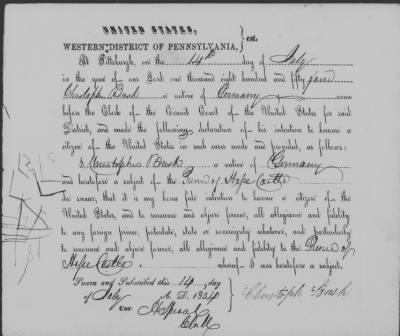 UNITED STATES,
WESTERN DISTRICT OF PENNSYLVANIA, } sct.
At Pittsburgh, on the 14th day of July
in the year of our Lord one thousand eight hundred and fifty four
Christoph Bush a native of Germany came
before the Clerk of the Circuit Court of the United States for said
District, and made the following declaration of his intention to become a
citizen of the United States in such case made and provided, as follows:
I, Christopher Bush a native of Germany
and heretofore a subject of the Prince of Hesse Castle
do swear, that it is my bona fide intention to become a citizen of the
United States, and to renounce and abjure forever, all allegiance and fidelity
to any foreign prince, potentate, state or sovereignty whatever, and particularly
to renounce and abjure forever, all allegiance and fidelity to the Prince of
Hesse Castle whereof I was heretofore a subject.
Sworn and Subscribed this 14 day
of July A. D. 1854
Cor. Christoph Bush
Clerk